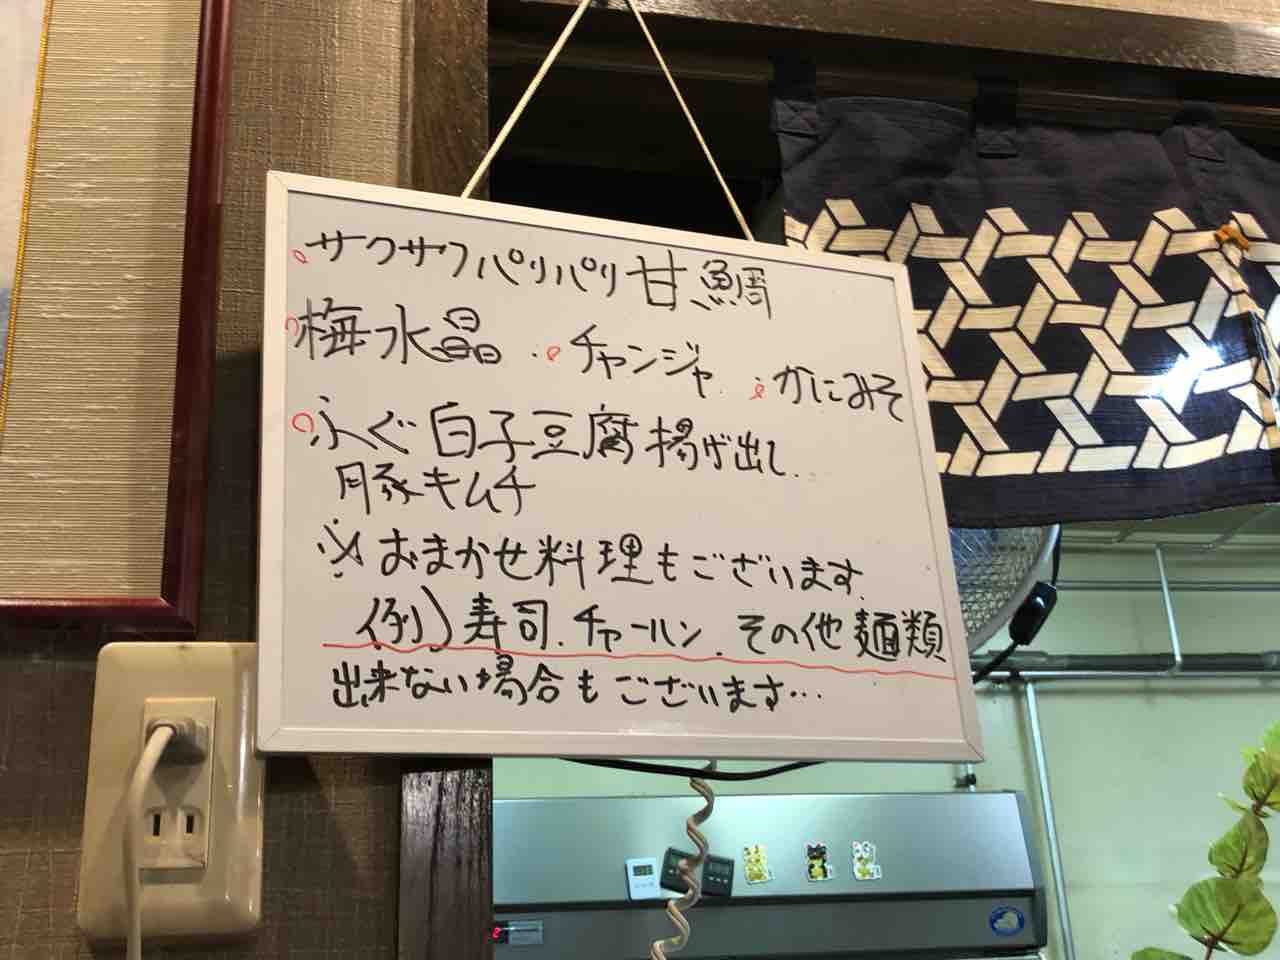 サクサクパリパリ甘鯛
梅水晶 ・チャンジャ ・かにみそ
ふぐ白子豆腐揚げ出し
豚キムチ
※おまかせ料理もございます。
(例)寿司.チャーハン.その他麺類
出来ない場合もございます…